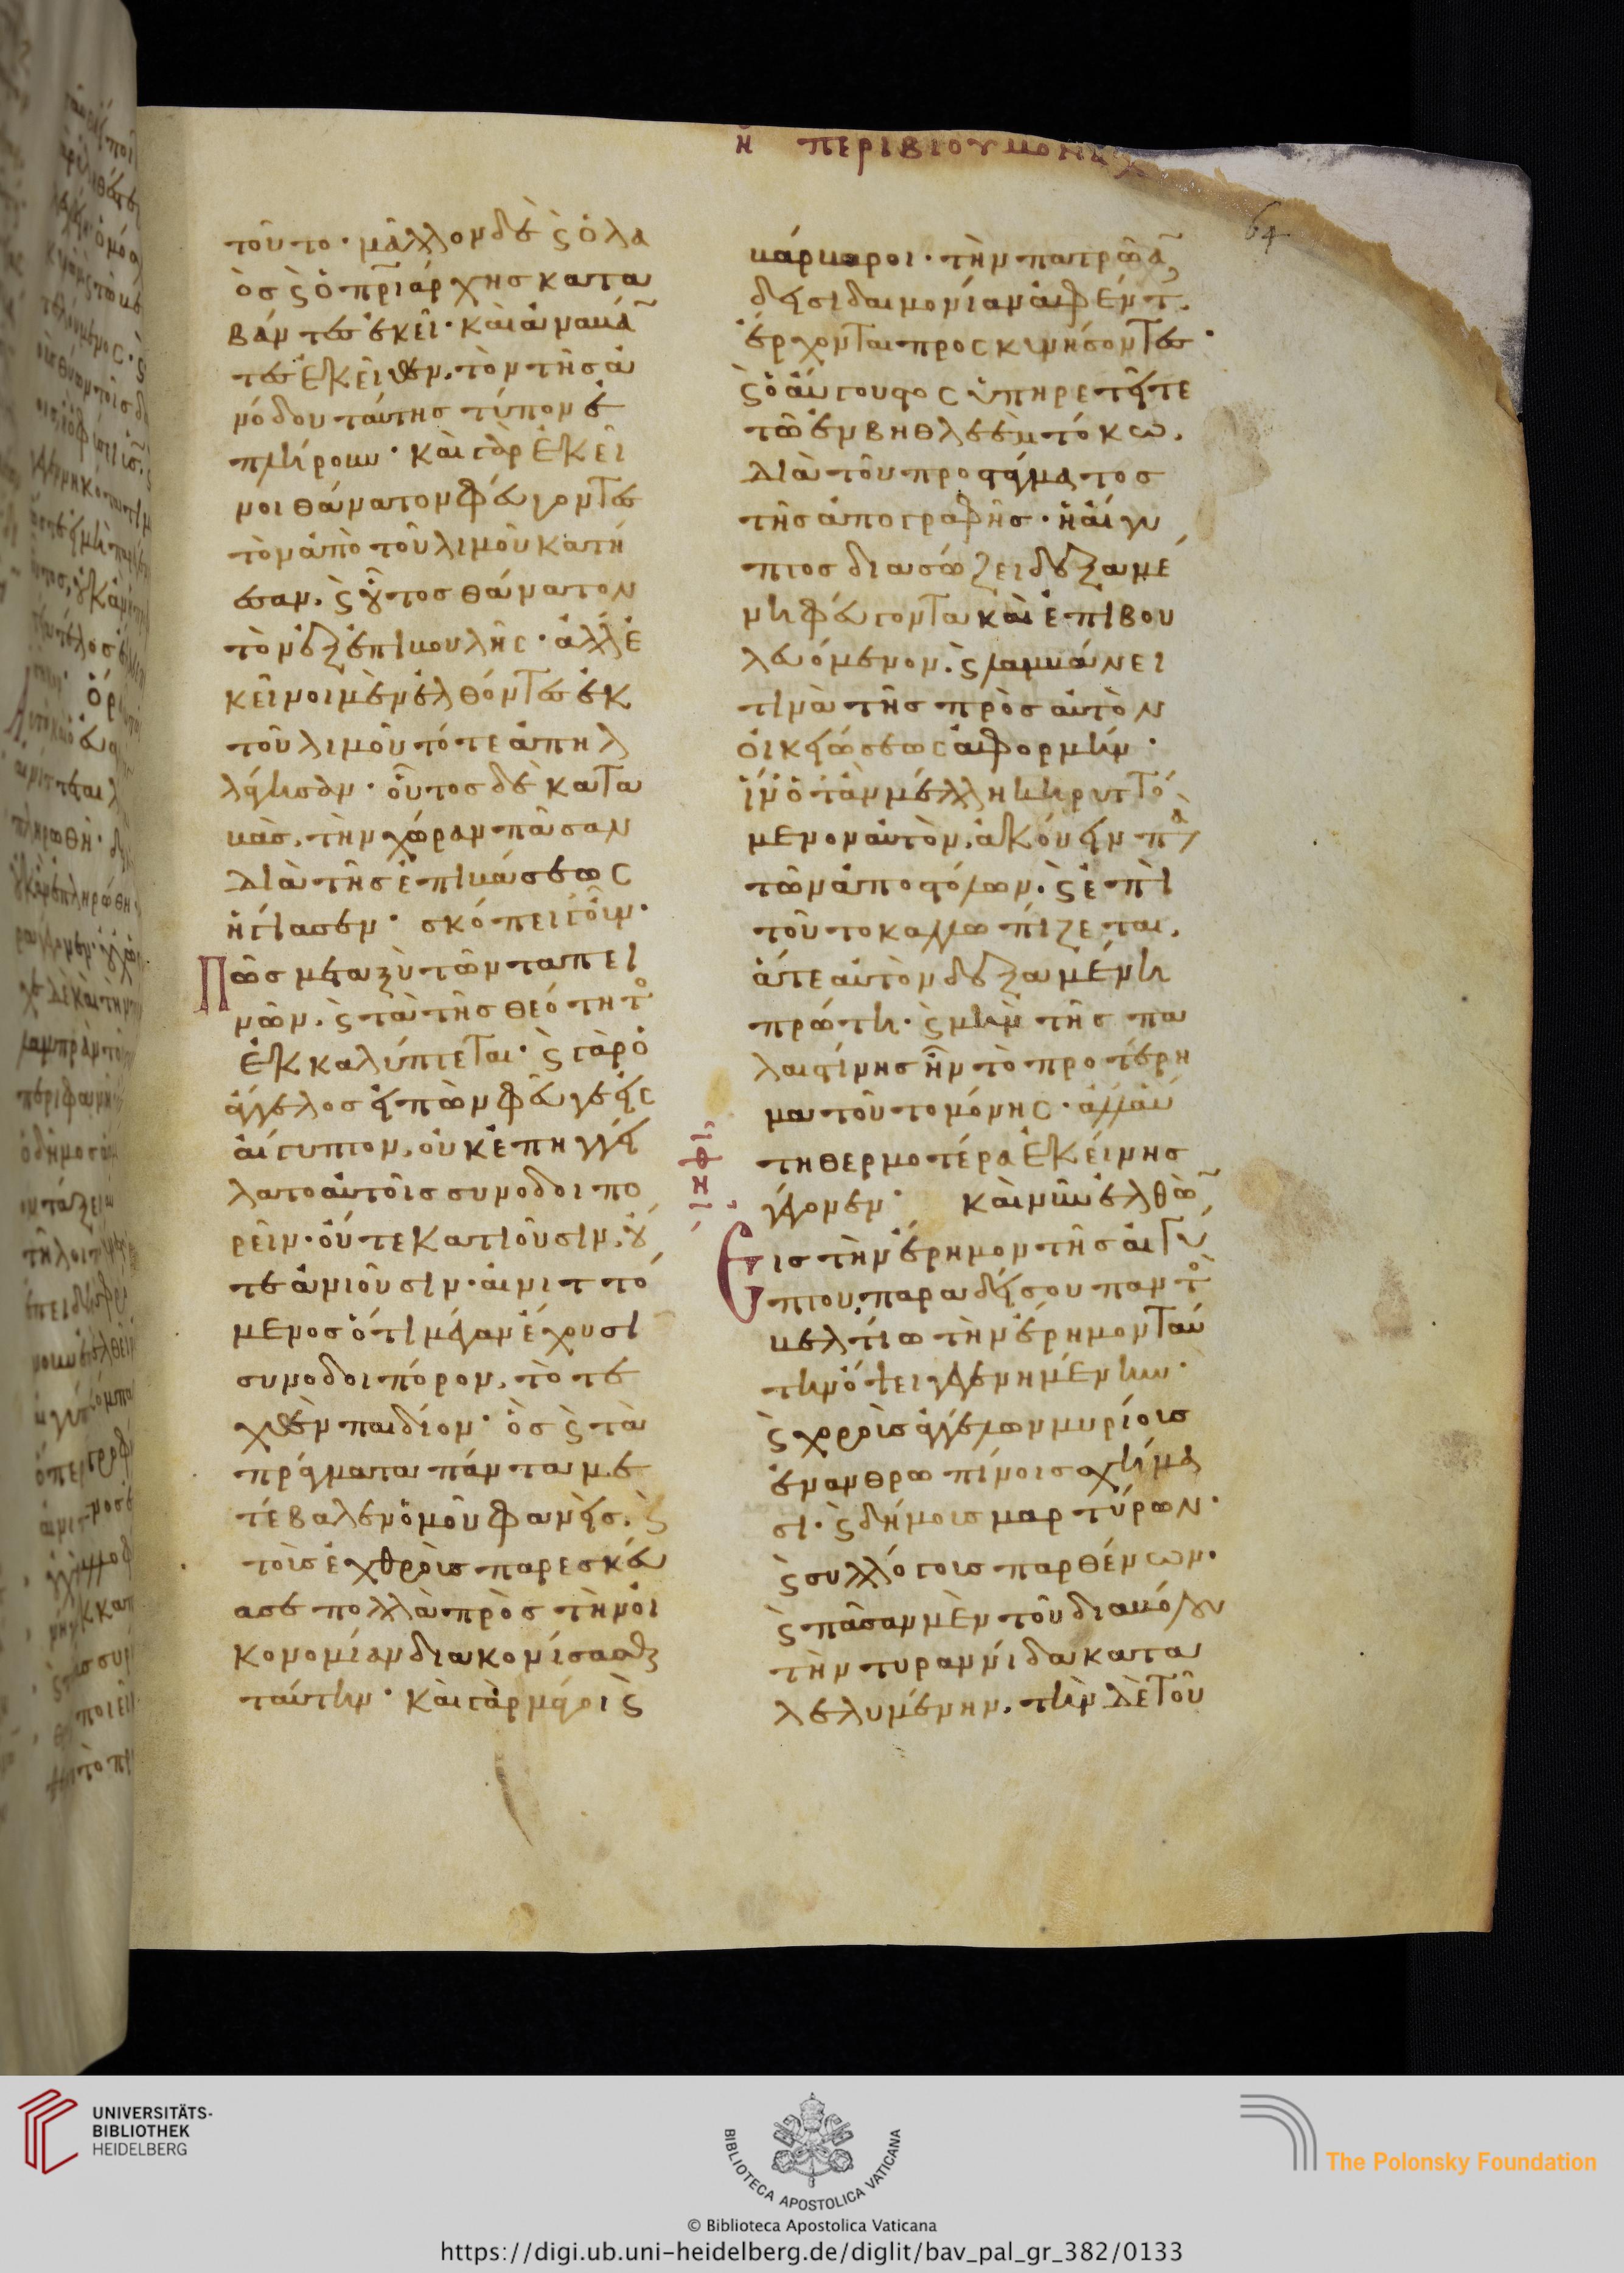 ἢ περὶ βίου μοναχ
64
τοῦτο· μᾶλλον δὲ ϛ ὁ λα
ὸς ϛ ὁ πριάρχης κατα
βάντες ἐκεῖ· καὶ ἀναβά
τες ἐκεῖθεν, τὸν τῆς ἀ
νόδου ταύτης τύπον ἐ
πλήρουν· καὶ γὰρ ἐκεῖ
νοι θάνατον φεύγοντες
τὸν ἀπὸ τοῦ λιμοῦ κατή
εσαν, ϛ οὗτος θάνατον
τὸν ἐξ ἐπιβουλῆς· ἀλλ' ἐ
κεῖνοι μὲν ἐλθόντες ἐκ
τοῦ λιμοῦ τότε ἀπηλ
λάγησαν· οὗτος δὲ κατα
βὰς, τὴν χώραν πᾶσαν
διὰ τῆς ἐπιβάσεως
ἡγίασεν· σκόπει γοῦν·
Πῶς μεταξὺ τῶν ταπει
νῶν, ϛ τὰ τῆς θεότητο
ἐκκαλύπτεται· ϛ γὰρ ὁ
ἄγγελος εἰπὼν φεῦγε εἰς
αἴγυπτον, οὐκ ἐπηγγεί
λατο αὐτοῖς συνοδοιπο
ρεῖν· οὔτε κατιοῦσιν, οὔ
τε ἀνιοῦσιν· αἰνιττό
μενος ὅτι μέγαν ἔχουσι
συνοδοιπόρον, τὸ τε
χθὲν παιδίον· ὃς ϛ τὰ
πράγματα πάντα με
τέβαλεν ὁμοῦ φανεὶς, ϛ
τοῖς ἐχθροῖς παρεσκεύ
ασε πολλὰ πρὸς τὴν οἰ
κονομίαν διακομίσασθαι
ταύτην· καὶ γὰρ μάγοι ϛ
βάρβαροι· τὴν πατρώα
δεισιδαιμονίαν ἀφέντ,
ἔρχονται προσκυνήσοντες·
ϛ ὁ αὔγουστος ὑπηρετεῖται
τῶ ἐν βηθλεὲμ τόκω,
διὰ τοῦ προστάγματος
τῆς ἀπογραφῆς· ἡ αἴγυ
πτος διασώζει δεξαμέ
νη φεύγοντα καὶ ἐπιβου
λευόμενον, ϛ λαμβάνει
τινὰ τῆς πρὸς αὐτὸν
οἰκειώσεως ἀφορμήν·
ἵν' ὅταν μέλλη κηρυττό
μενον αὐτὸν, ἀκούειν πα
τῶν ἀποστόλων, ϛ ἐπὶ
τοῦτο καλλωπίζεται,
ἅτε αὐτὸν δεξαμένη
πρώτη· ϛ μὴν τῆς πα
λαιστίνης ἦν τὸ προτέρη
μα τοῦτο μόνης· ἀλλ' αὕ
τη θερμοτέρα ἐκείνης
γέγονεν· καὶ νῦν ἐλθὼ
Εἰς τὴν ἔρημον τῆς αἰγύ
πτου, παραδείσου παντο
βελτίω τὴν ἔρημον ταύ
την ὄψει γεγενημένην·
ϛ χοροῖς ἀγγέλων μυρίοις
ἐν ἀνθρωπίνοις σχήμα
σι· ϛ δήμοις μαρτύρων·
ϛ συλλόγοις παρθένων·
ϛ πᾶσαν μὲν τοῦ διαβόλου
τὴν τυραννίδα κατα
λελυμένην, τὴν δὲ τοῦ
UNIVERSITÄTS-
BIBLIOTHEK
HEIDELBERG
BIBLIOTECA APOSTOLICA VATICANA
The Polonsky Foundation
© Biblioteca Apostolica Vaticana
https://digi.ub.uni-heidelberg.de/diglit/bav_pal_gr_382/0133